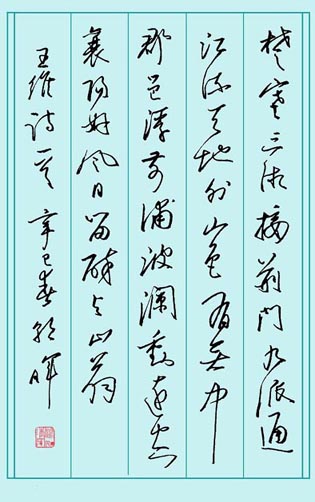 楚塞三湘接荆门九派通
江流天地外山色有无中
郡邑浮前浦波澜动远空
襄阳好风日留醉与山翁
王维诗一首 辛巳春 晖